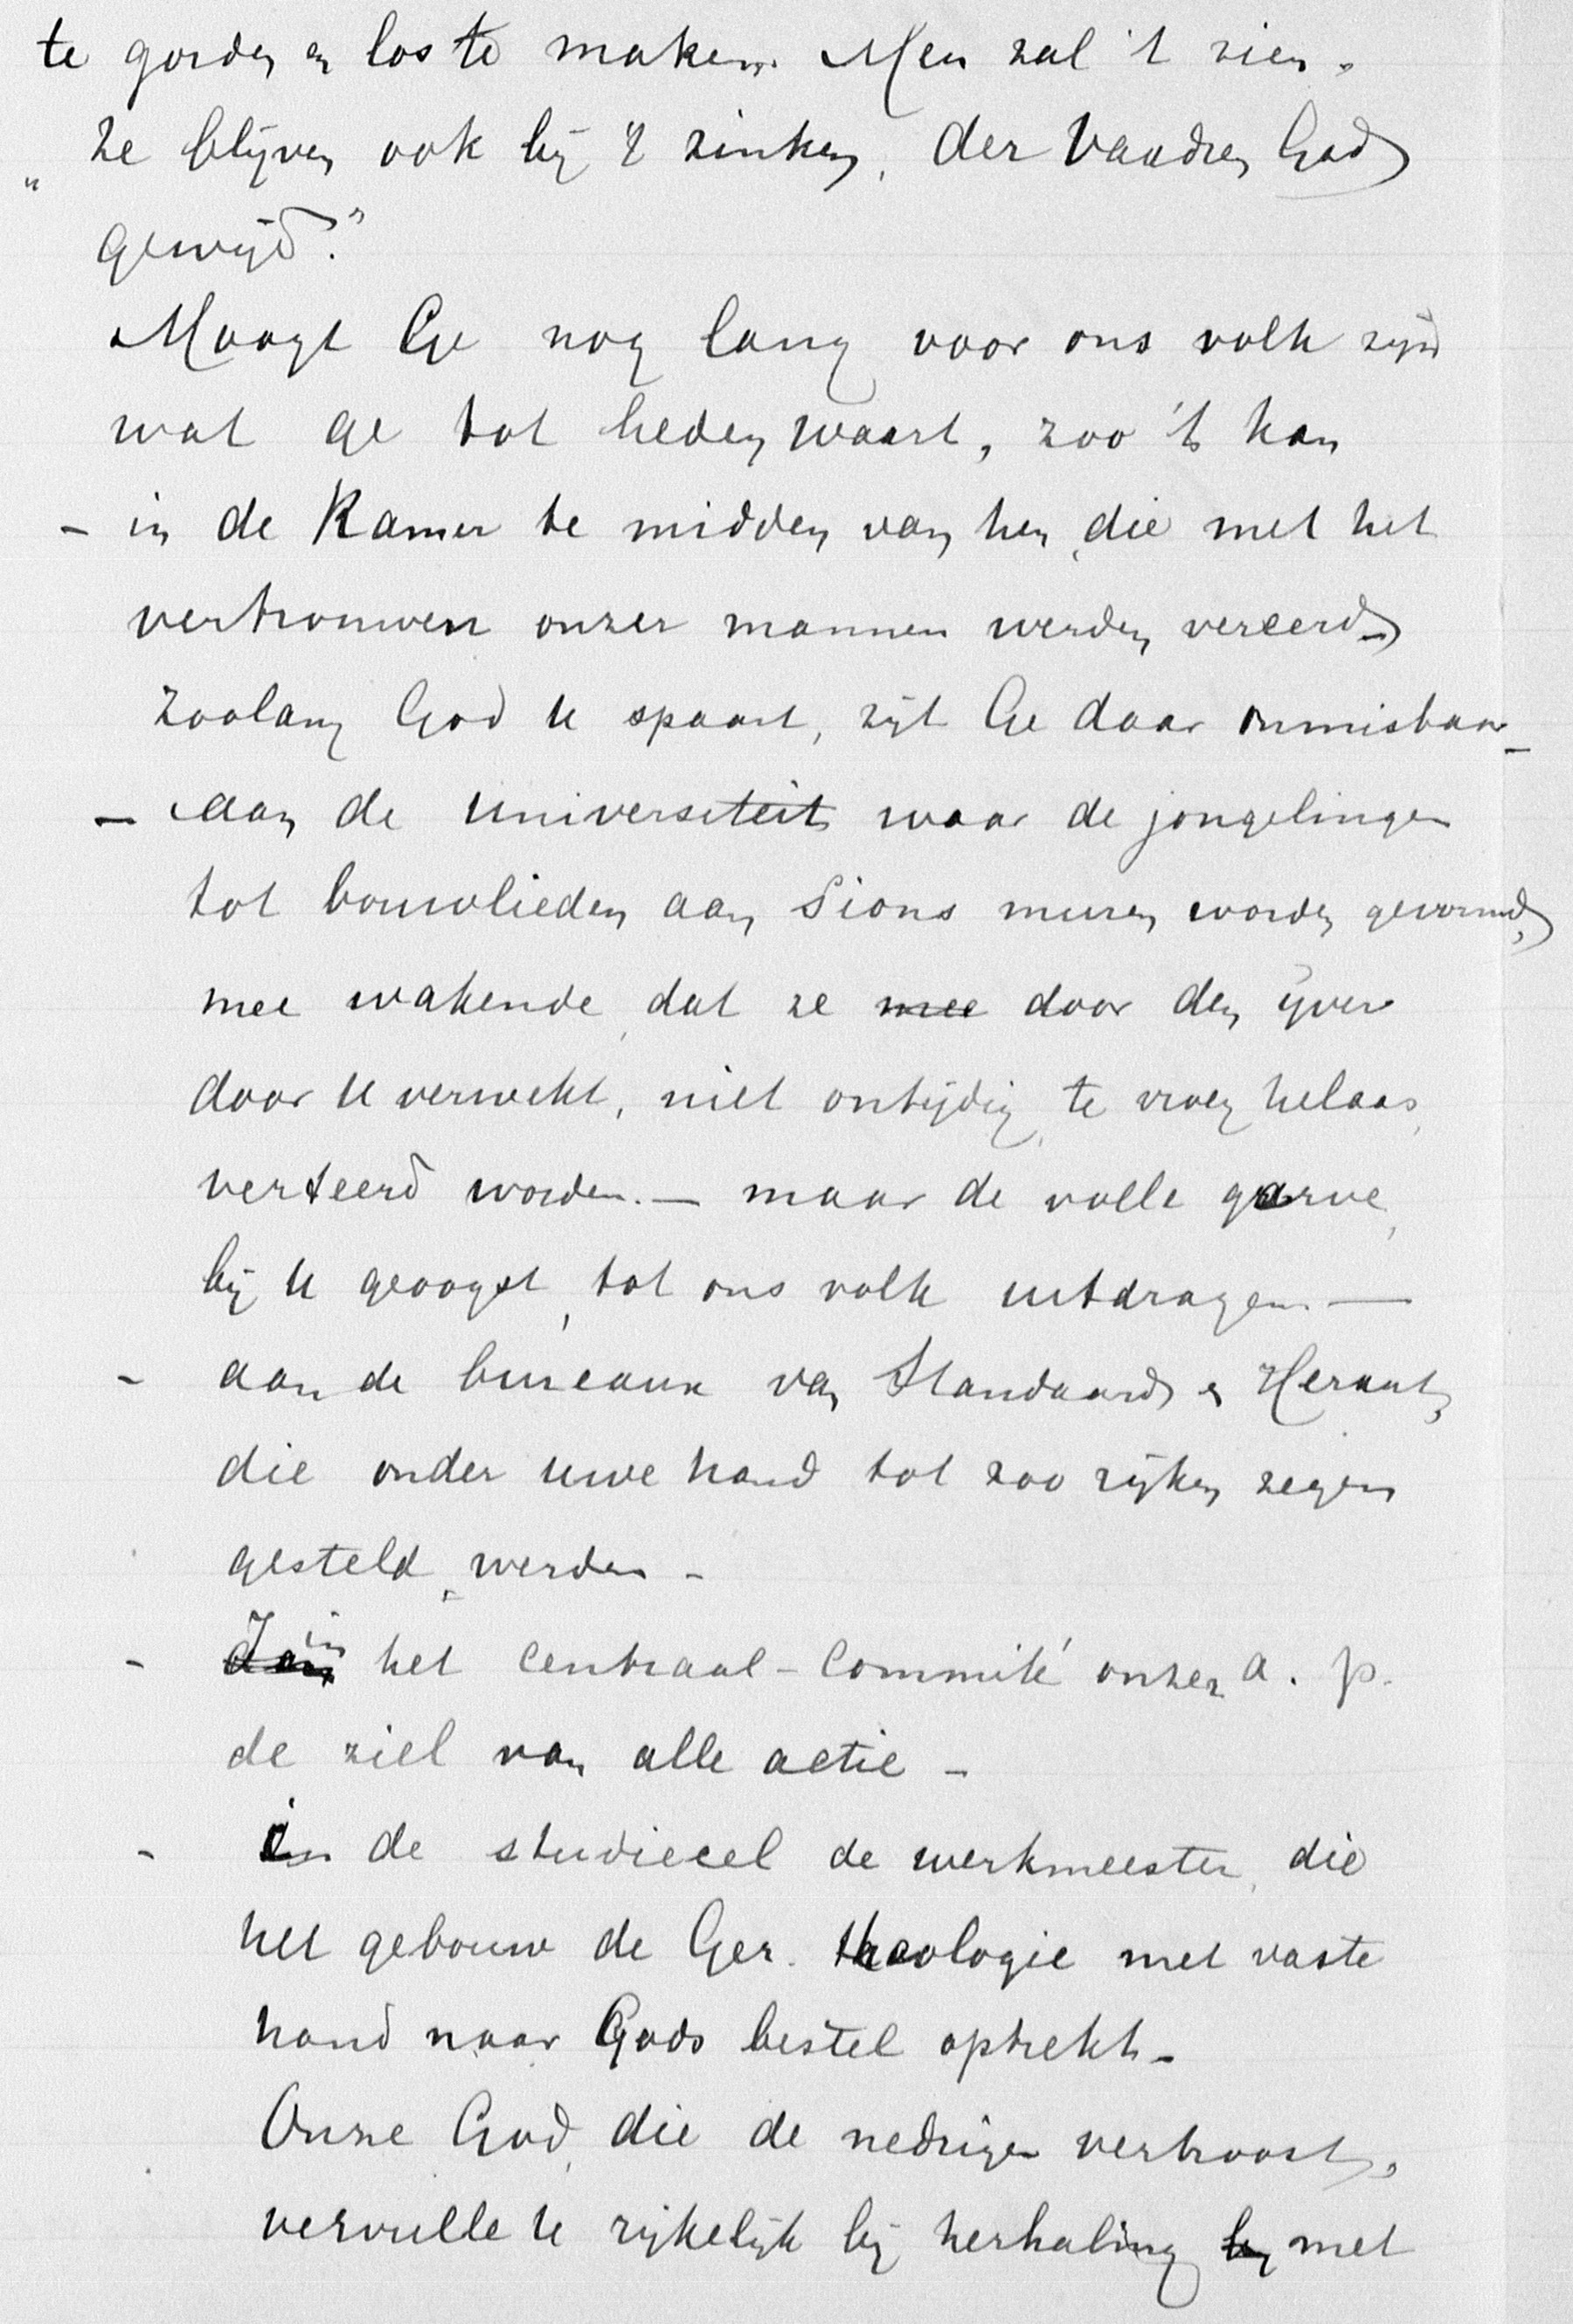 te gorden en los te maken. Men zal 't zien.
"ze blijven ook bij 't zinken, der Vaadren God
gewijd."
Moogt Ge nog lang voor ons volk zijn
wat ge tot heden waart, zoo 't kan
- in de Kamer te midden van hen, die met het
vertrouwen onzer mannen werden vereerd -
zoolang God U spaart, zijt Ge daar onmisbaar -
- aan de Universiteit waar de jongelingen
tot bouwlieden aan Sions muren worden gevormd,
mee wakende, dat ze mee door den ijver
door U verwekt, niet ontijdig, te vroeg helaas,
verteerd worden. — maar de volle garve,
bij U geoogst, tot ons volk uitdragen. —
- aan de bureaux van Standaard en Heraut,
die onder uwe hand tot zoo rijken zegen
gesteld werden -
- in het Centraal-Commité onzer a. p.
de ziel van alle actie -
- in de studiecel de werkmeester, die
het gebouw de Ger. theologie met vaste
hand naar Gods bestel optrekt -
Onze God, die de nedrigen vertroost,
vervulle U rijkelijk bij herhaling bij met